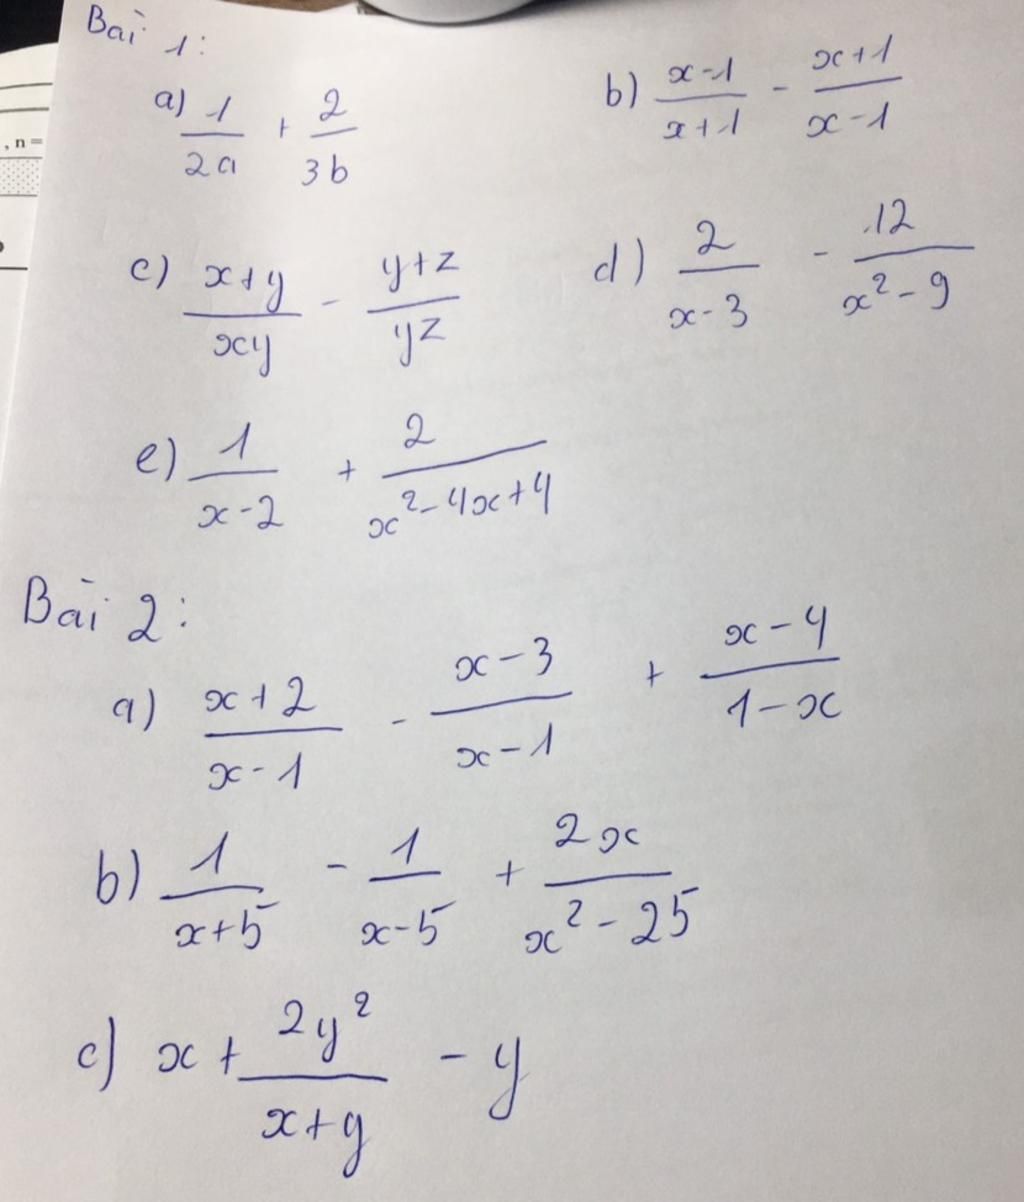 Bài 1:
a) 1/2a + 2/3b
b) x-1/x+1 - x+1/x-1
c) x+y/xy - y+z/yz
d) 2/x-3 - 12/x²-9
e) 1/x-2 + 2/x²-4x+4
Bài 2:
a) x+2/x-1 - x-3/x-1 + x-4/1-x
b) 1/x+5 - 1/x-5 + 2x/x²-25
c) x + 2y²/x+y - y
, n =